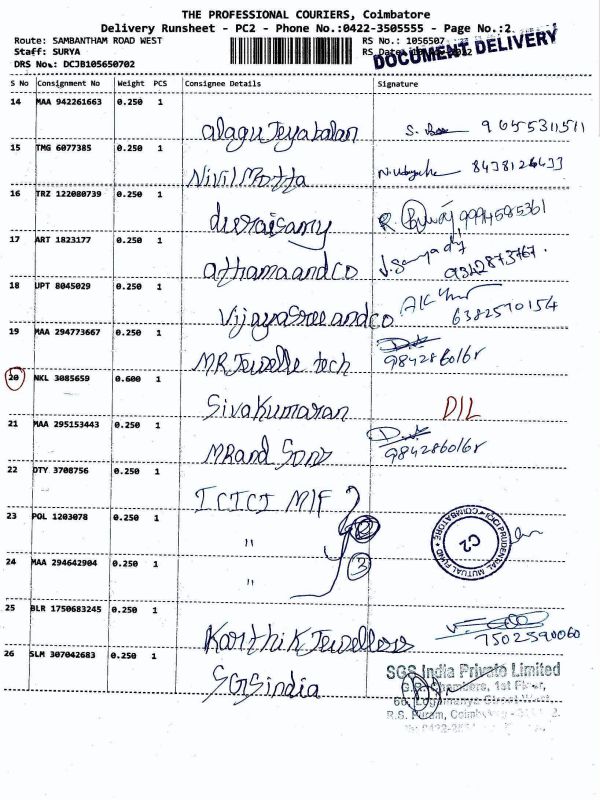 THE PROFESSIONAL COURIERS, Coimbatore
Delivery Runsheet - PC2 - Phone No.:0422-3505555 - Page No.:2
Route: SAMBANTHAM ROAD WEST
RS No.: 1056507
Staff: SURYA
RS Date:
DOCUMENT DELIVERY
DRS No.: DCJB105650702
S No Consignment No Weight PCS Consignee Details Signature
14 MAA 942261663 0.250 1 alagu Jeyabalan 9655311511
15 TMG 6077385 0.250 1 Nivil Motta 8438126433
16 TRZ 122080739 0.250 1 duraisamy R. 9994585361
17 ART 1823177 0.250 1 athamaandco 9342873767.
18 UPT 8045029 0.250 1 Vijayasree and co 6382570154
19 MAA 294773667 0.250 1 MR Jewelle tech 9842860168
20 NKL 3085659 0.600 1 Sivakumaran DIL
21 MAA 295153443 0.250 1 MRand Sons 9842860168
22 DTY 3708756 0.250 1 ICICI MIF
23 POL 1203078 0.250 1 "
ICICI PRUDENTIAL MUTUAL FUND * COIMBATORE *
C2
24 MAA 294642904 0.250 1 " 3
25 BLR 1750683245 0.250 1 Karthik Jewellers 7502590060
26 SLM 307042683 0.250 1 SGSindia
SGS India Private Limited
G.R. Chambers, 1st Floor,
R.S. Puram,